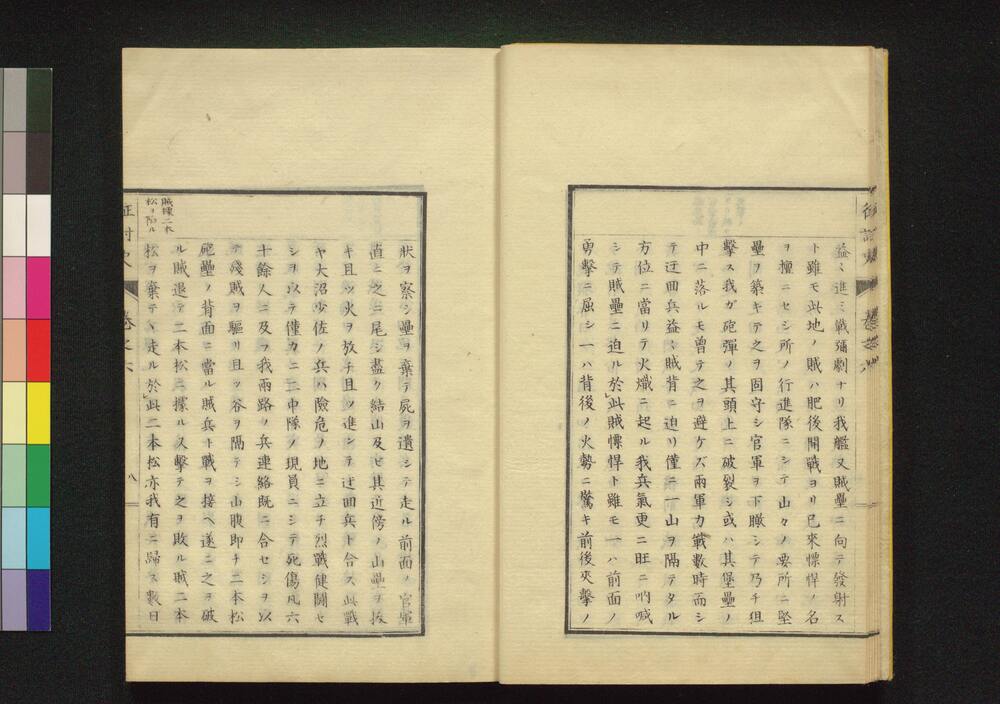 益〻進ミ戰彌劇ナリ我艦又賊壘ニ向テ發射ス
ト雖モ此地ノ賊ハ肥後開戰ヨリ已來慓悍ノ名
ヲ擅ニセシ所ノ行進隊ニシテ山々ノ要所ニ堅
壘ヲ築キテ之ヲ固守シ官軍ヲ下瞰シテ乃チ狙
擊ス我ガ砲彈ノ其頭上ニ破裂シ或ハ其堡壘ノ
中ニ落ルモ曾テ之ヲ避ケズ兩軍力戰數時而シ
テ迂回兵益〻賊背ニ迫リ僅ニ一山ヲ隔テタル
方位ニ當リテ火熾ニ起ル我兵氣更ニ旺ニ吶喊
シテ賊壘ニ迫ル於」此賊慓悍ト雖モ一ハ前面ノ
勇擊ニ屈シ一ハ背後ノ火勢ニ驚キ前後夾擊ノ
狀ヲ察シ壘ヲ棄テ屍ヲ遺シテ走ル前面ノ官軍
直ニ之ニ尾シ盡ク結山及ビ其近傍ノ山壘ヲ拔
キ且ツ火ヲ放チ且ツ進ンテ迂回兵ト合ス此戰
ヤ大沼少佐ノ兵ハ險危ノ地ニ立チ烈戰健鬪セ
シヲ以テ僅カニ二中隊ノ現員ニシテ死傷凡六
十餘人ニ及フ我兩路ノ兵連絡既ニ合セシヲ以
テ殘賊ヲ驅リ且ツ谷ヲ隔テシ山腹即チ二本松
砲壘ノ背面ニ當ル賊兵ト戰ヲ接ヘ遂ニ之ヲ破
ル賊退テ二本松ニ據ル又擊テ之ヲ敗ル賊二本
松ヲ棄テヽ走ル於」此二本松亦我有ニ歸ス數日
賊據二本
松ヲ陷ル
征討史
卷之六
八